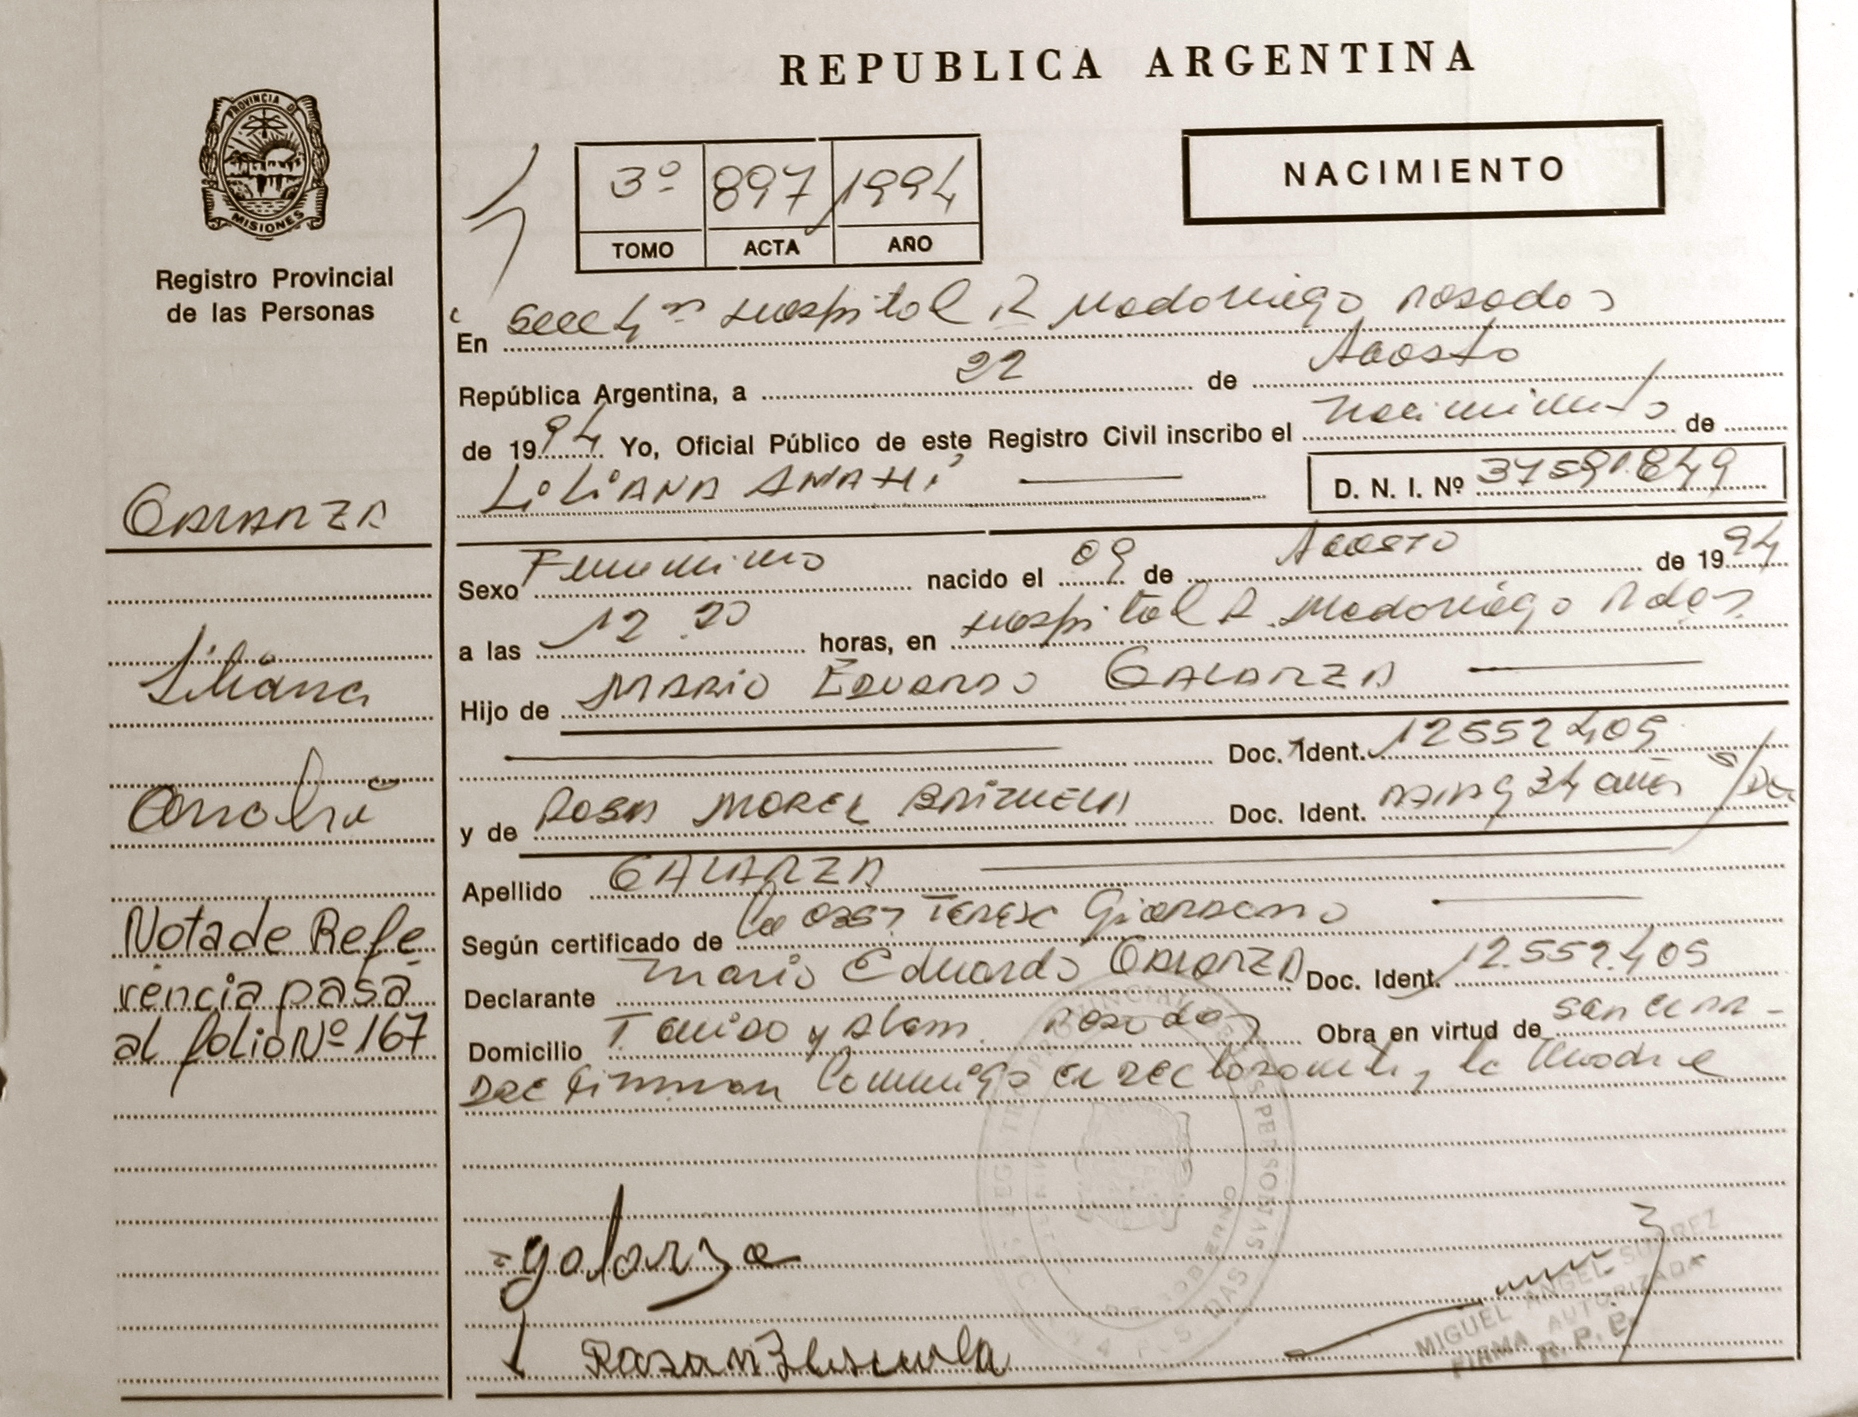 REPUBLICA ARGENTINA
PROVINCIA D
MISIONES
Registro Provincial
de las Personas
3º 897 1994
TOMO ACTA AÑO
NACIMIENTO
En Secc Hospital R Madariaga Posadas
República Argentina, a 22 de Agosto
de 1994 Yo, Oficial Público de este Registro Civil inscribo el nacimiento de
LiLiANA ANAHi D. N. I. Nº 37591849
GALARZA
Sexo Femenino nacido el 09 de Agosto de 1994
a las 12 20 horas, en Hospital R. Madariaga Pdas
Liliana
Hijo de MARiO EDUARDO GALARZA
Doc. Ident. 12552409
Anahí
y de ROSA MOREL BRIZUELA Doc. Ident. 34 años
Apellido GALARZA
Nota de Refe
Según certificado de Teresa Giordano
rencia pasa
Declarante Mario Eduardo GALARZA Doc. Ident. 12.552.409
al folio Nº 167
Domicilio y Posadas Obra en virtud de
firman Conmigo el declarante y la madre
galarza
MIGUEL ANGEL SUAREZ
FIRMA AUTORIZADA
R. P. P.